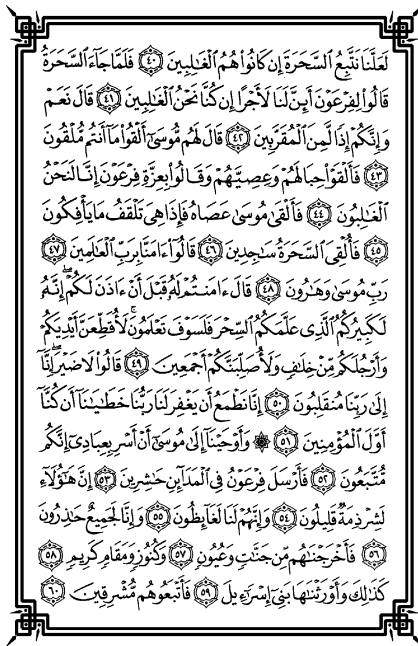 لَعَلَّنَا نَتَّبِعُ السَّحَرَةَ إِن كَانُوا۟ هُمُ الْغَٰلِبِينَ ٤٠ فَلَمَّا جَآءَ السَّحَرَةُ
قَالُوا۟ لِفِرْعَوْنَ أَئِنَّ لَنَا لَأَجْرًا إِن كُنَّا نَحْنُ الْغَٰلِبِينَ ٤١ قَالَ نَعَمْ
وَإِنَّكُمْ إِذًا لَّمِنَ الْمُقَرَّبِينَ ٤٢ قَالَ لَهُم مُّوسَىٰٓ أَلْقُوا۟ مَآ أَنتُم مُّلْقُونَ
٤٣ فَأَلْقَوْا۟ حِبَالَهُمْ وَعِصِيَّهُمْ وَقَالُوا۟ بِعِزَّةِ فِرْعَوْنَ إِنَّا لَنَحْنُ
الْغَٰلِبُونَ ٤٤ فَأَلْقَىٰ مُوسَىٰ عَصَاهُ فَإِذَا هِىَ تَلْقَفُ مَا يَأْفِكُونَ
٤٥ فَأُلْقِىَ السَّحَرَةُ سَٰجِدِينَ ٤٦ قَالُوٓا۟ ءَامَنَّا بِرَبِّ الْعَٰلَمِينَ ٤٧
رَبِّ مُوسَىٰ وَهَٰرُونَ ٤٨ قَالَ ءَامَنتُمْ لَهُۥ قَبْلَ أَنْ ءَاذَنَ لَكُمْ ۖ إِنَّهُۥ
لَكَبِيرُكُمُ الَّذِى عَلَّمَكُمُ السِّحْرَ فَلَسَوْفَ تَعْلَمُونَ ۚ لَأُقَطِّعَنَّ أَيْدِيَكُمْ
وَأَرْجُلَكُم مِّنْ خِلَٰفٍ وَلَأُصَلِّبَنَّكُمْ أَجْمَعِينَ ٤٩ قَالُوا۟ لَا ضَيْرَ ۖ إِنَّآ
إِلَىٰ رَبِّنَا مُنقَلِبُونَ ٥٠ إِنَّا نَطْمَعُ أَن يَغْفِرَ لَنَا رَبُّنَا خَطَٰيَٰنَآ أَن كُنَّآ
أَوَّلَ الْمُؤْمِنِينَ ٥١ ۞ وَأَوْحَيْنَآ إِلَىٰ مُوسَىٰٓ أَنْ أَسْرِ بِعِبَادِىٓ إِنَّكُم
مُّتَّبَعُونَ ٥٢ فَأَرْسَلَ فِرْعَوْنُ فِى الْمَدَآئِنِ حَٰشِرِينَ ٥٣ إِنَّ هَٰٓؤُلَآءِ
لَشِرْذِمَةٌ قَلِيلُونَ ٥٤ وَإِنَّهُمْ لَنَا لَغَآئِظُونَ ٥٥ وَإِنَّا لَجَمِيعٌ حَٰذِرُونَ
٥٦ فَأَخْرَجْنَٰهُم مِّن جَنَّٰتٍ وَعُيُونٍ ٥٧ وَكُنُوزٍ وَمَقَامٍ كَرِيمٍ ٥٨
كَذَٰلِكَ وَأَوْرَثْنَٰهَا بَنِىٓ إِسْرَٰٓءِيلَ ٥٩ فَأَتْبَعُوهُم مُّشْرِقِينَ ٦٠